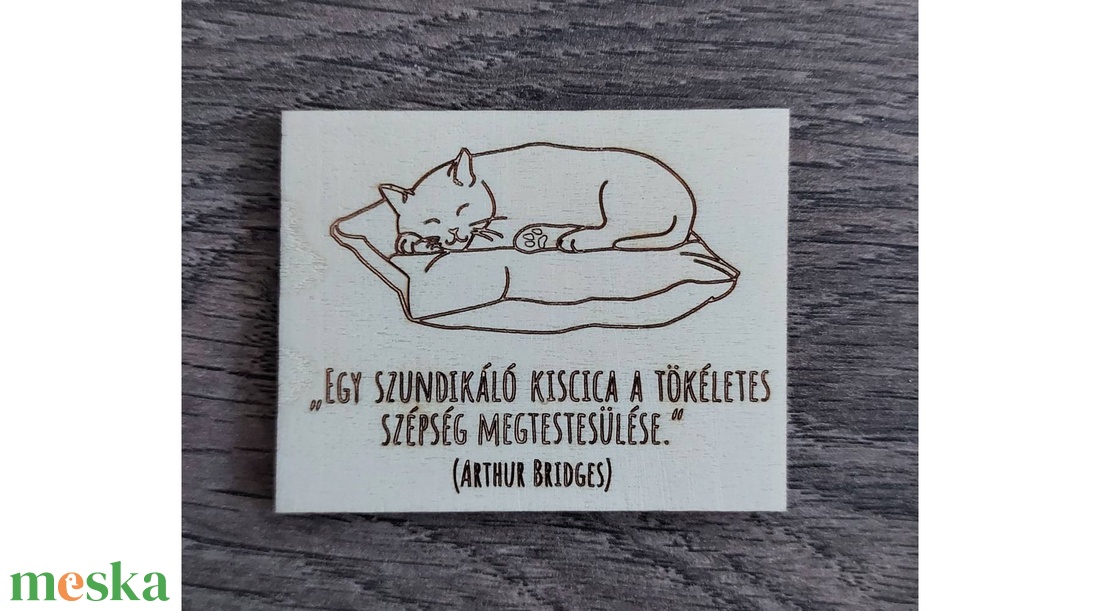 „Egy szundikáló kiscica a tökéletes
szépség megtestesülése.”
(Arthur Bridges)
meska